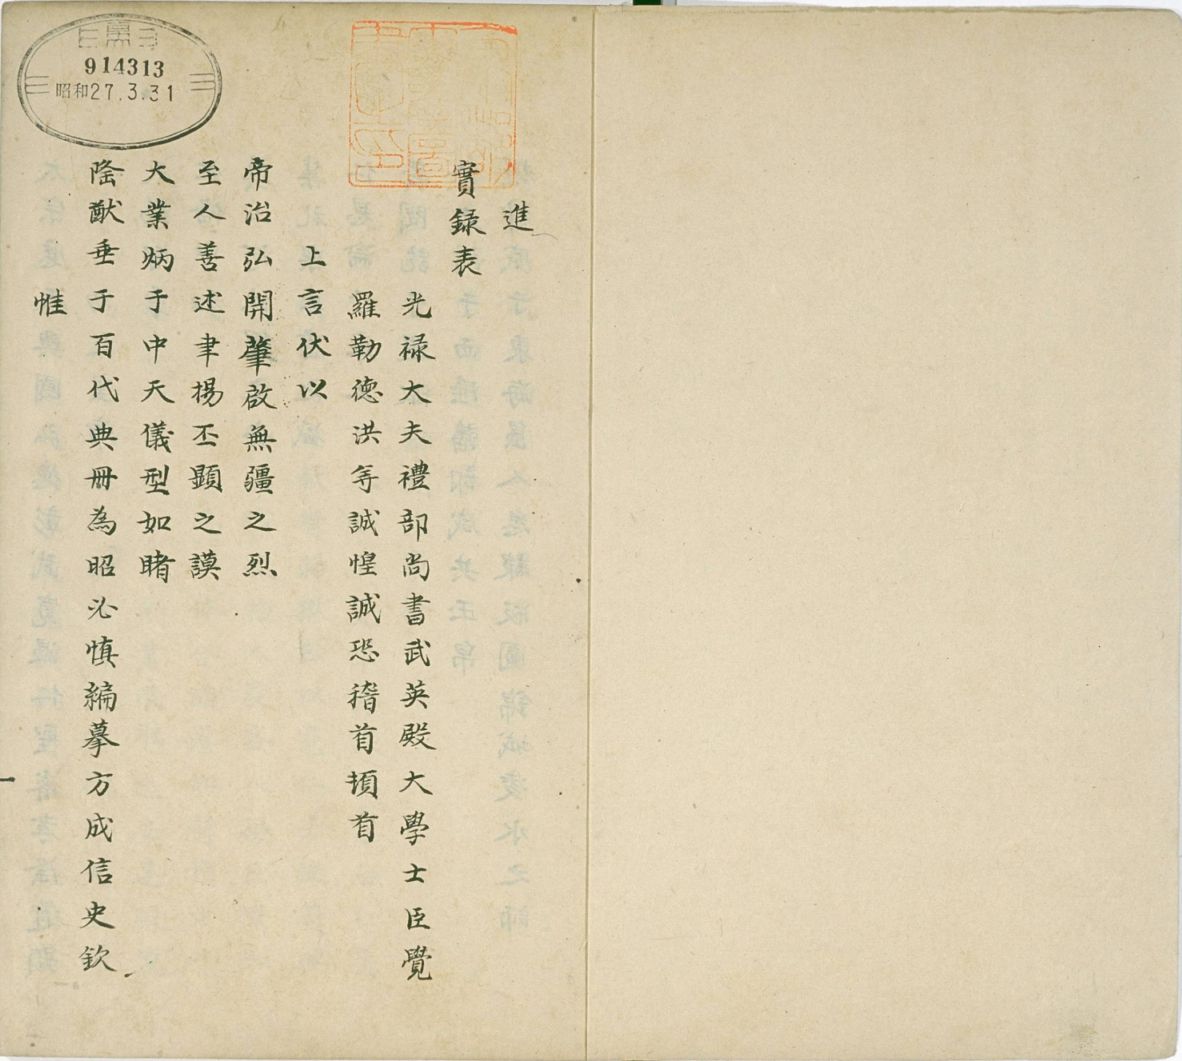 進
實録表
光禄大夫禮部尚書武英殿大學士臣覺
羅勒德洪等誠惶誠恐稽首頓首
上言伏以
帝治弘開肇啟無疆之烈
至人善述聿揚丕顯之謨
大業炳于中天儀型如睹
隂猷垂于百代典冊為昭必慎編摹方成信史欽
惟
914313
昭和27.3.31